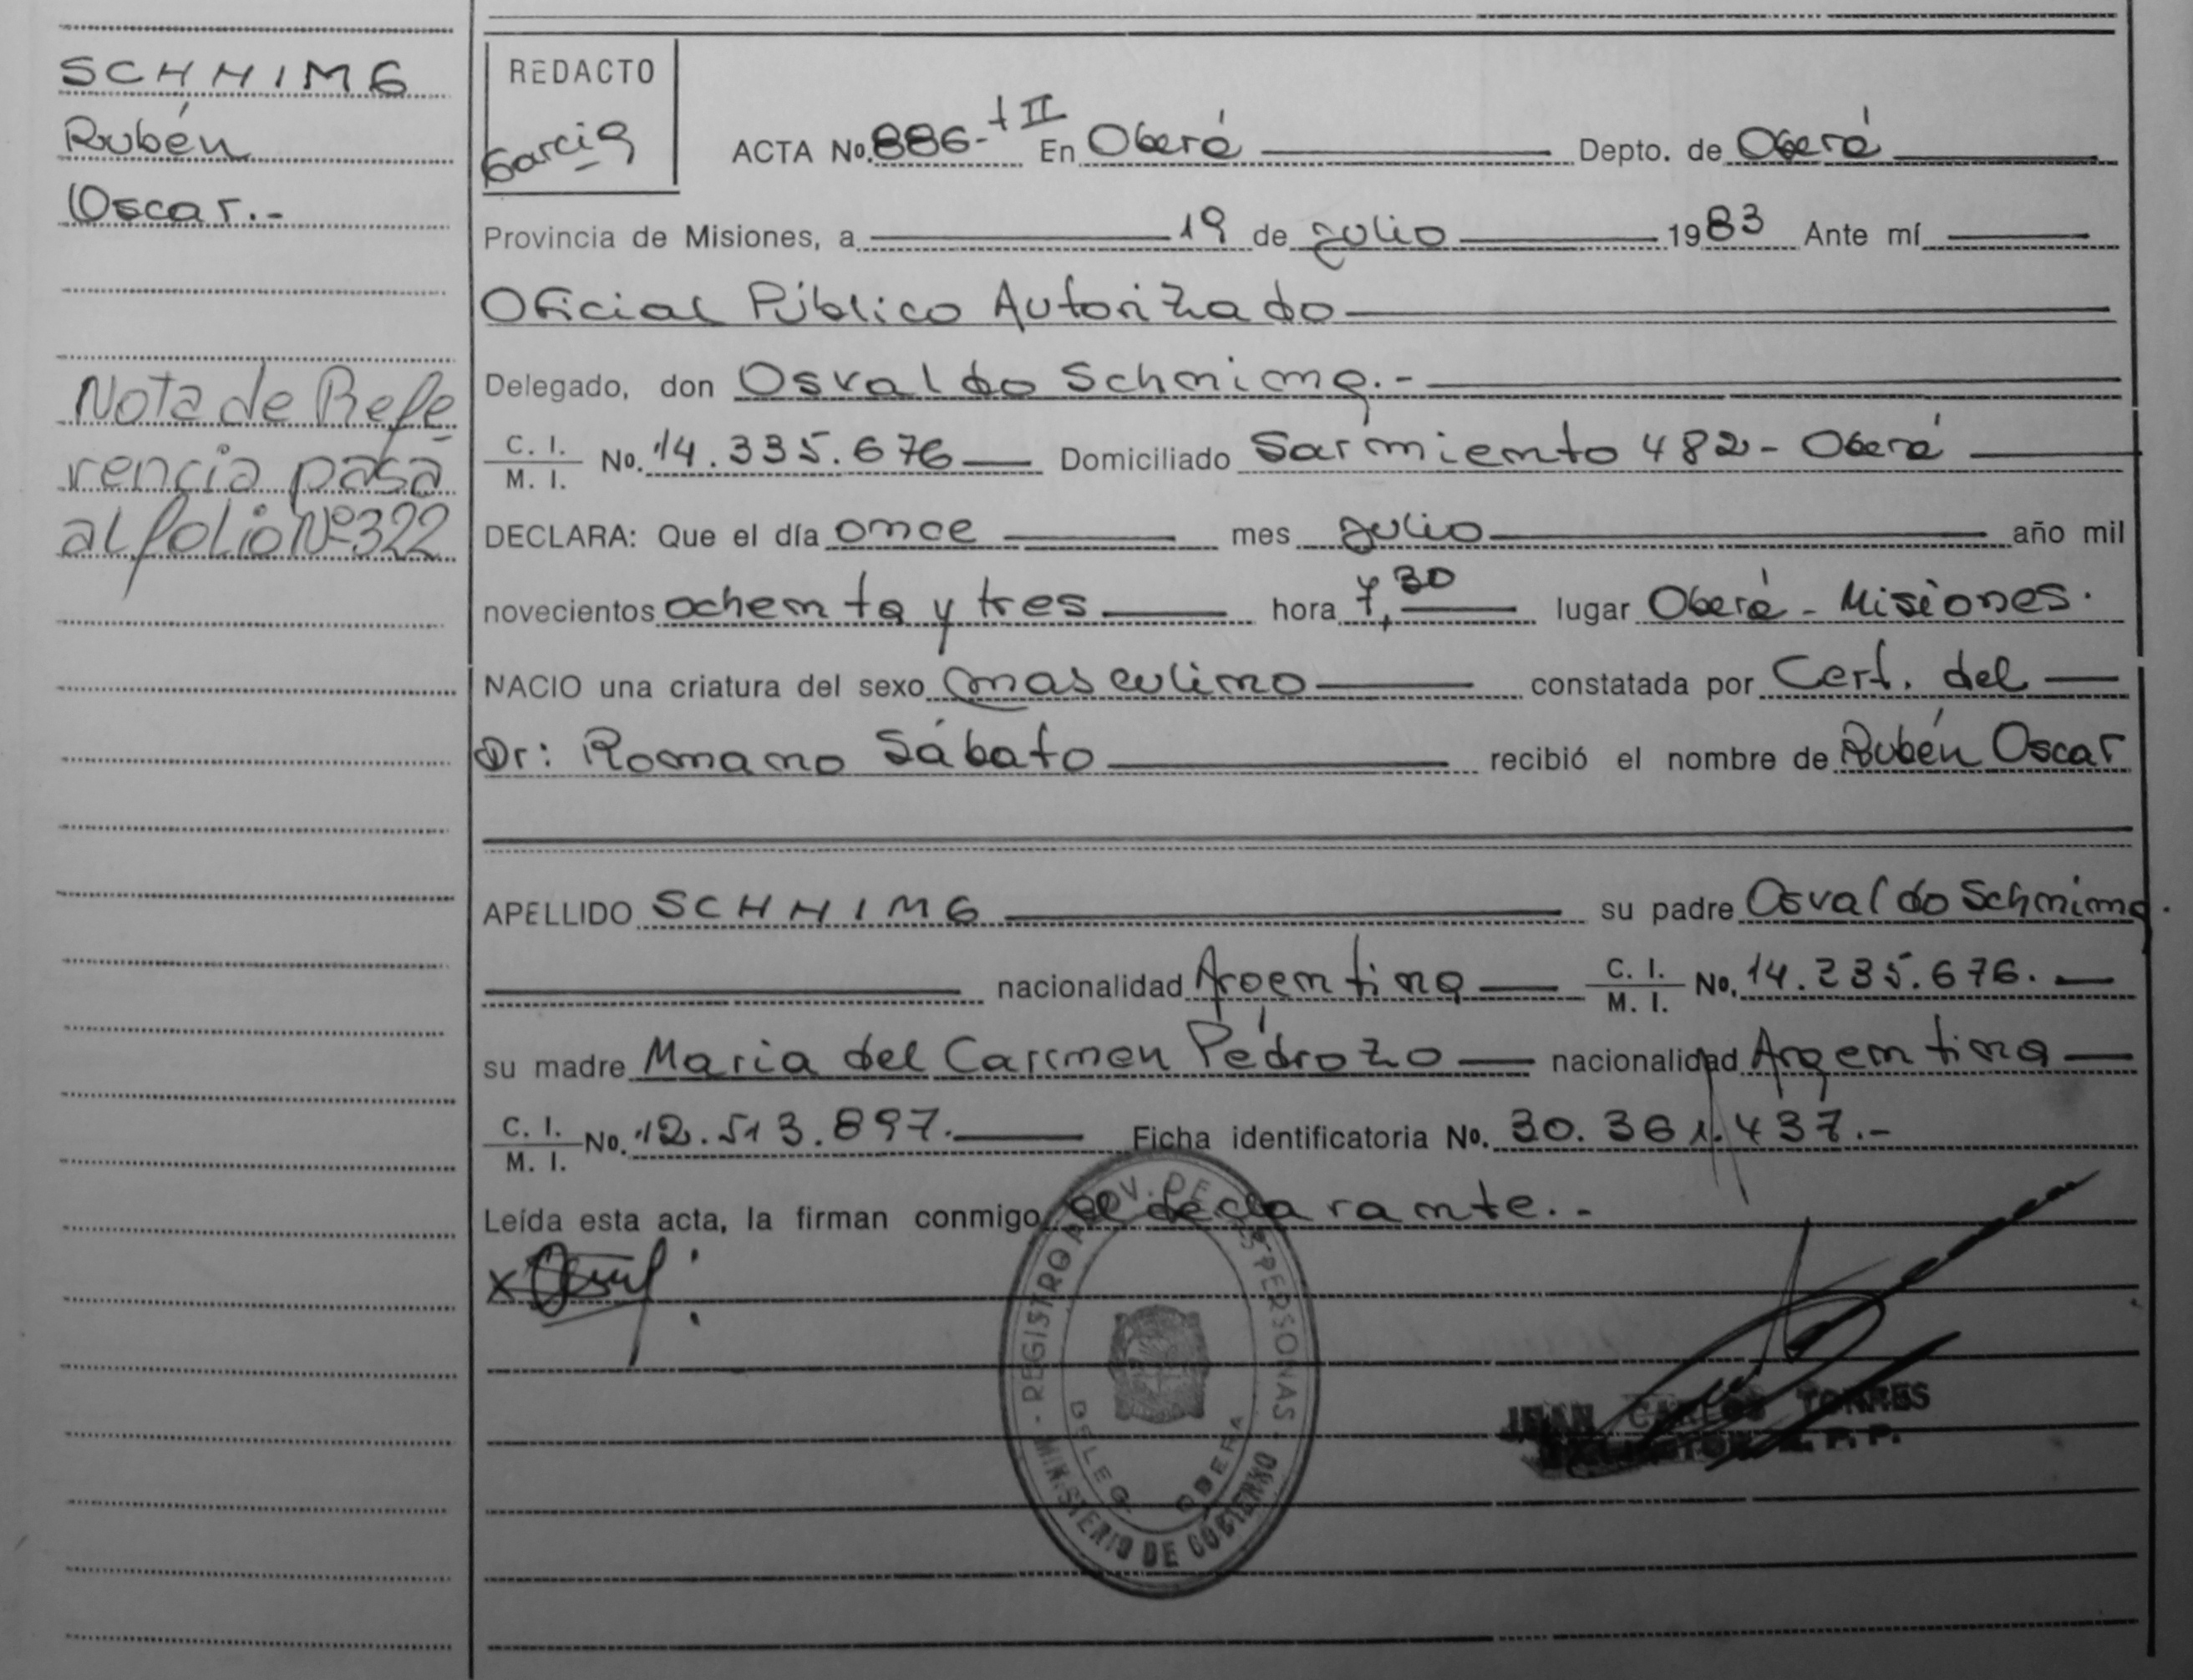 SCHNING
Rubén
Oscar.-
Nota de Refe
rencia pasa
al folio Nº322
REDACTO
Garcia
ACTA No. 886- t II En Oberá Depto. de Oberá
Provincia de Misiones, a 19 de julio 1983 Ante mí
Oficial Público Autorizado
Delegado, don Osvaldo Schning.-
C. I.
M. I. No. 14.335.676 Domiciliado Sarmiento 482 - Oberá
DECLARA: Que el día once mes julio año mil
novecientos ochenta y tres hora 7,30 lugar Oberá - Misiones.
NACIO una criatura del sexo masculino constatada por Cert. del
Dr: Romano Sábato recibió el nombre de Rubén Oscar
APELLIDO SCHNING su padre Osvaldo Schning.
nacionalidad Argentina C. I.
M. I. No. 14.235.676.
su madre Maria del Carmen Pedrozo nacionalidad Argentina
C. I.
M. I. No. 12.513.897. Ficha identificatoria No. 30.361.437.-
Leída esta acta, la firman conmigo el declarante.-
REGISTRO PROV. DE LAS PERSONAS
DELEG. OBERA
MINISTERIO DE GOBIERNO
JUAN CARLOS TORRES
R. P. P.